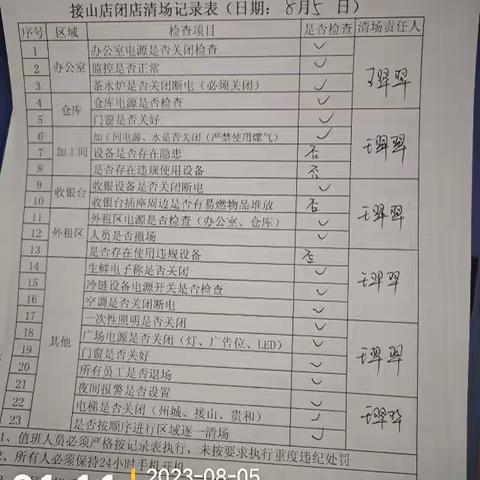 接山店闭店清场记录表（日期：8月5日）
序号 区域 检查项目 是否检查 清场责任人
1 办公室 办公室电源是否关闭检查 ✓
2 监控是否正常 ✓
3 茶水炉是否关闭断电（必须关闭） ✓
4 仓库 仓库电源是否检查 ✓
5 门窗是否关好 ✓
6 加工间 加工间电源、水是否关闭（严禁使用煤气） ✓
7 设备是否存在隐患 否
8 是否存在违规使用设备 否
9 收银台 收银设备是否关闭断电 ✓
10 收银台插座周边是否有易燃物品堆放 否
11 外租区 外租区电源是否检查（办公室、仓库） ✓
12 人员是否撤场 ✓
13 是否存在使用违规设备 否
14 其他 生鲜电子称是否关闭 ✓
15 冷链设备电源开关是否检查 ✓
16 空调是否关闭断电 ✓
17 一次性照明是否关闭 ✓
18 广场电源是否关闭（灯、广告位、LED） ✓
19 门窗是否关好 ✓
20 所有员工是否退场 ✓
21 夜间报警是否设置 ✓
22 电梯是否关闭（州城、接山、贵和） ✓
23 是否按顺序进行区域逐一清场 ✓
1、值班人员必须严格按记录表执行，未按要求执行重度违纪处罚
2、所有人必须保持24小时手机开机
2023-08-05